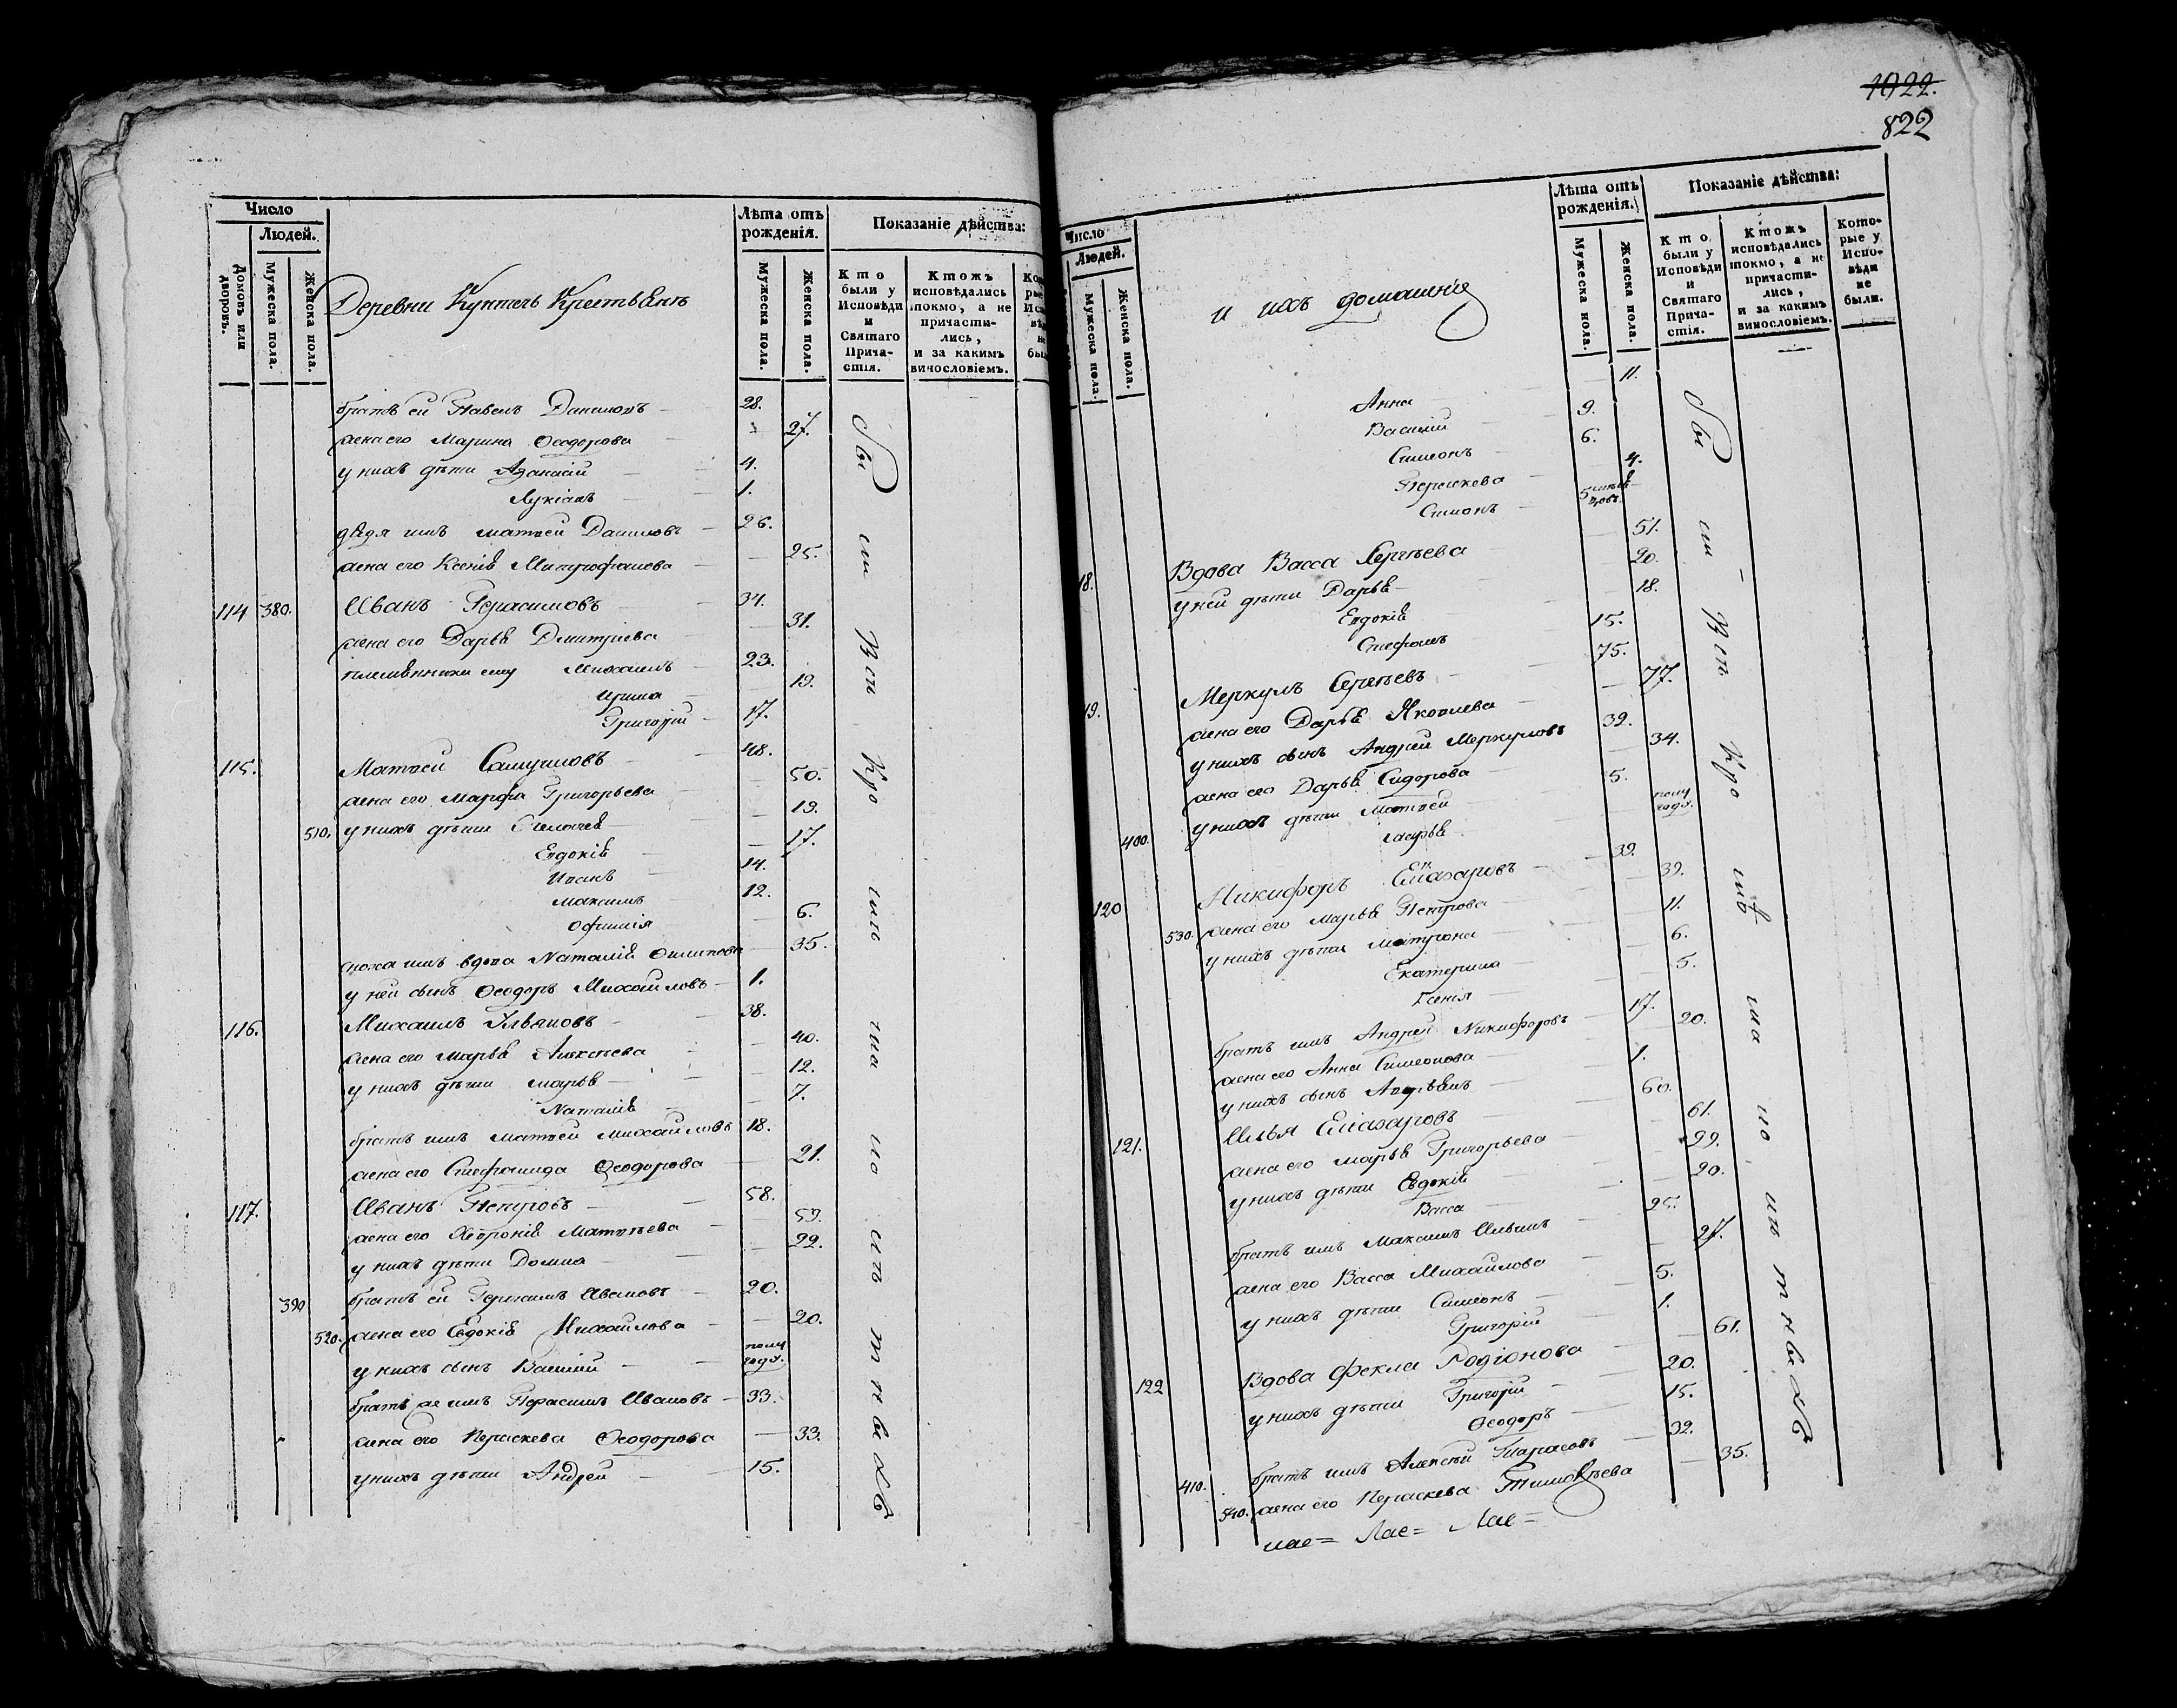 1922.
822
Число
Людей.
Домовъ или дворовъ.
Мужеска пола.
Женска пола.
Деревни Крестьянъ
Лѣта отъ рожденія.
Мужеска пола.
Женска пола.
Показаніе дѣйства:
Кто были у Исповѣди и Святаго Прича-стія.
Ктожъ исповѣдались токмо, а не причасти-лись, и за какимъ винословіемъ.
братъ ей Павелъ Даниловъ 28.
жена его Марина Ѳеодорова 27.
у нихъ дѣти Аѳанасій 4.
Лукіанъ 1.
дядя имъ Матвей Даниловъ 26.
жена его Ксенія Митрофанова 25.
114 380. Иванъ Герасимовъ 34.
жена его Дарья Дмитріева 31.
племянники ему Михаилъ 23.
Ирина 19.
Григорій 17.
115. Матвей Самуиловъ 48.
жена его Марфа Григорьева 50.
510. у нихъ дѣти 19.
Евдокія 17.
Иванъ 14.
Максимъ 12.
Офимія 6.
вдова Наталія 35.
у ней сынъ Ѳеодоръ Михайловъ 1.
116. Михаилъ Ульяновъ 38.
жена его Марья Алексѣева 40.
у нихъ дѣти Марья 12.
Наталія 7.
братъ имъ Матвей Михайловъ 18.
жена его Степанида Ѳеодорова 21.
117. Иванъ Петровъ 58.
жена его Матвѣева 59.
у нихъ дѣти Домна 22.
390 братъ ей Иванов 20.
520. жена его Евдокія Михайлова 20.
у нихъ сынъ Василій полу года.
братъ же имъ Герасимъ Ивановъ 33.
жена его Параскева Ѳеодорова 33.
у нихъ дѣти Андрей 15.
Число
Людей.
Мужеска пола.
Женска пола.
и ихъ домашнія
Лѣта отъ рожденія.
Мужеска пола.
Женска пола.
Показаніе дѣйства:
Кто были у Исповѣди и Святаго Прича-стія.
Ктожъ исповѣдались токмо, а не причасти-лись, и за какимъ винословіемъ.
Кото-рые у Испо-вѣди не были.
Анна 11.
Василій 9.
Симеонъ 6.
Параскева 4.
Симонъ 5
18. Вдова Васса Сергѣева 51.
у ней дѣти Дарья 20.
Евдокія 18.
Стефанъ 15.
19. Меркулъ Сергѣевъ 75.
жена его Дарья Яковлева 77.
у нихъ сынъ Андрей Меркуловъ 39.
жена его Дарья Сидорова 34.
400. у нихъ дѣти Матвей 5.
Марья полу года.
120 Никифоръ Елиазаровъ 39.
530. жена его Марья Петрова 39.
у нихъ дѣти Матрона 11.
Екатерина 6.
Ксенія 5.
братъ имъ Андрей Никифоровъ 17.
жена его Анна Симеонова 20.
у нихъ сынъ 1.
121. Илья Елиазаровъ 60.
жена его Марья Григорьева 61.
у нихъ дѣти Евдокія 22.
Васса 20.
братъ имъ Максимъ Ильинъ 25.
жена его Васса Михайлова 27.
у нихъ дѣти Симеонъ 5.
Григорій 1.
122 Вдова Фекла Родіонова 61.
у нихъ дѣти Григорій 20.
Ѳеодоръ 15.
410. братъ имъ Алексѣй Тарасовъ 32.
540. жена его Параскева Тимофѣева 35.